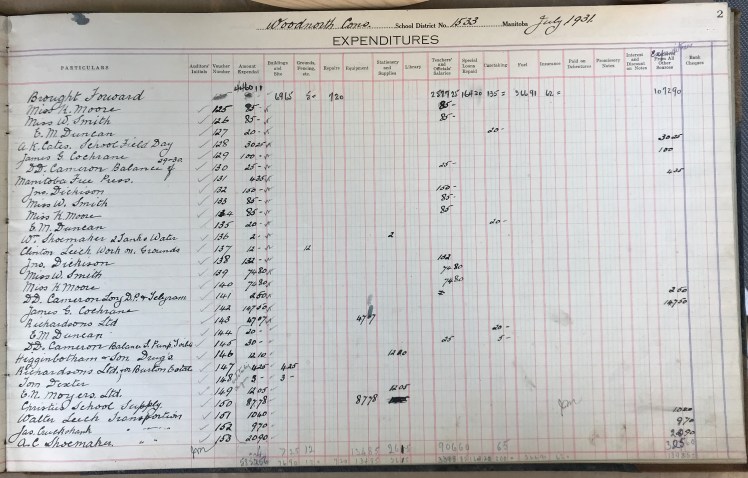 2
Woodnorth Cons. School District No. 1533 Manitoba July 1931.
EXPENDITURES
PARTICULARS Auditors' Initials Voucher Number Amount Expended Buildings and Site Grounds, Fencing, etc. Repairs Equipment Stationery and Supplies Library Teachers' and Officials' Salaries Special Loans Repaid Caretaking Fuel Insurance Paid on Debentures Promissory Notes Interest and Discount on Notes Expenditures From All Other Sources Bank Charges
Brought Forward 6965 720 164.20 135 = 62 = 107290
Miss K. Moore 125 85 - 85-
Miss W. Smith 126 85 - 85-
E. M. Duncan 127 20 - 20 -
A. K. Cates. School Field Day 128 3025 3025
James G. Cochrane 129 100 - 100
D.D. Cameron Balance of 29-30 130 25 - 25-
Manitoba Free Press. 131 435 435
Jno. Dickison 132 150 - 150-
Miss W. Smith 133 85 - 85-
Miss K. Moore 134 85 - 85
E. M. Duncan 135 20 - 20-
Wm. Shoemaker 2 Tanks Water 136 2 - 2
Clinton Leich Work on Grounds 137 12 - 12
Jno. Dickison 138 132 - 132
Miss W. Smith 139 7480 7480
Miss K. Moore 140 7480 7480
D.D. Cameron Long D.P. & Telegram 141 260 260
James G. Cochrane 142 10750 10750
Richardsons Ltd 143 4707 4707
E M Duncan 144 20 - 20 -
D.D. Cameron Balance & Pump Tubes 145 30 - 25 5 -
Higginbotham & Son Drugs 146 1210 1210
Richardsons Ltd, for Burton Estate 147 425 425
Tom Dexter 148 3 - 3 -
E. N. Moyers Ltd. 149 1205 1205
Christie School Supply 150 8778 8778
Walter Leich Transportion 151 1040 1040
Jas. Cruickshank " 152 970 970
A.C Shoemaker " " 153 2090 2090
Jm 725 12 13485 90660 65